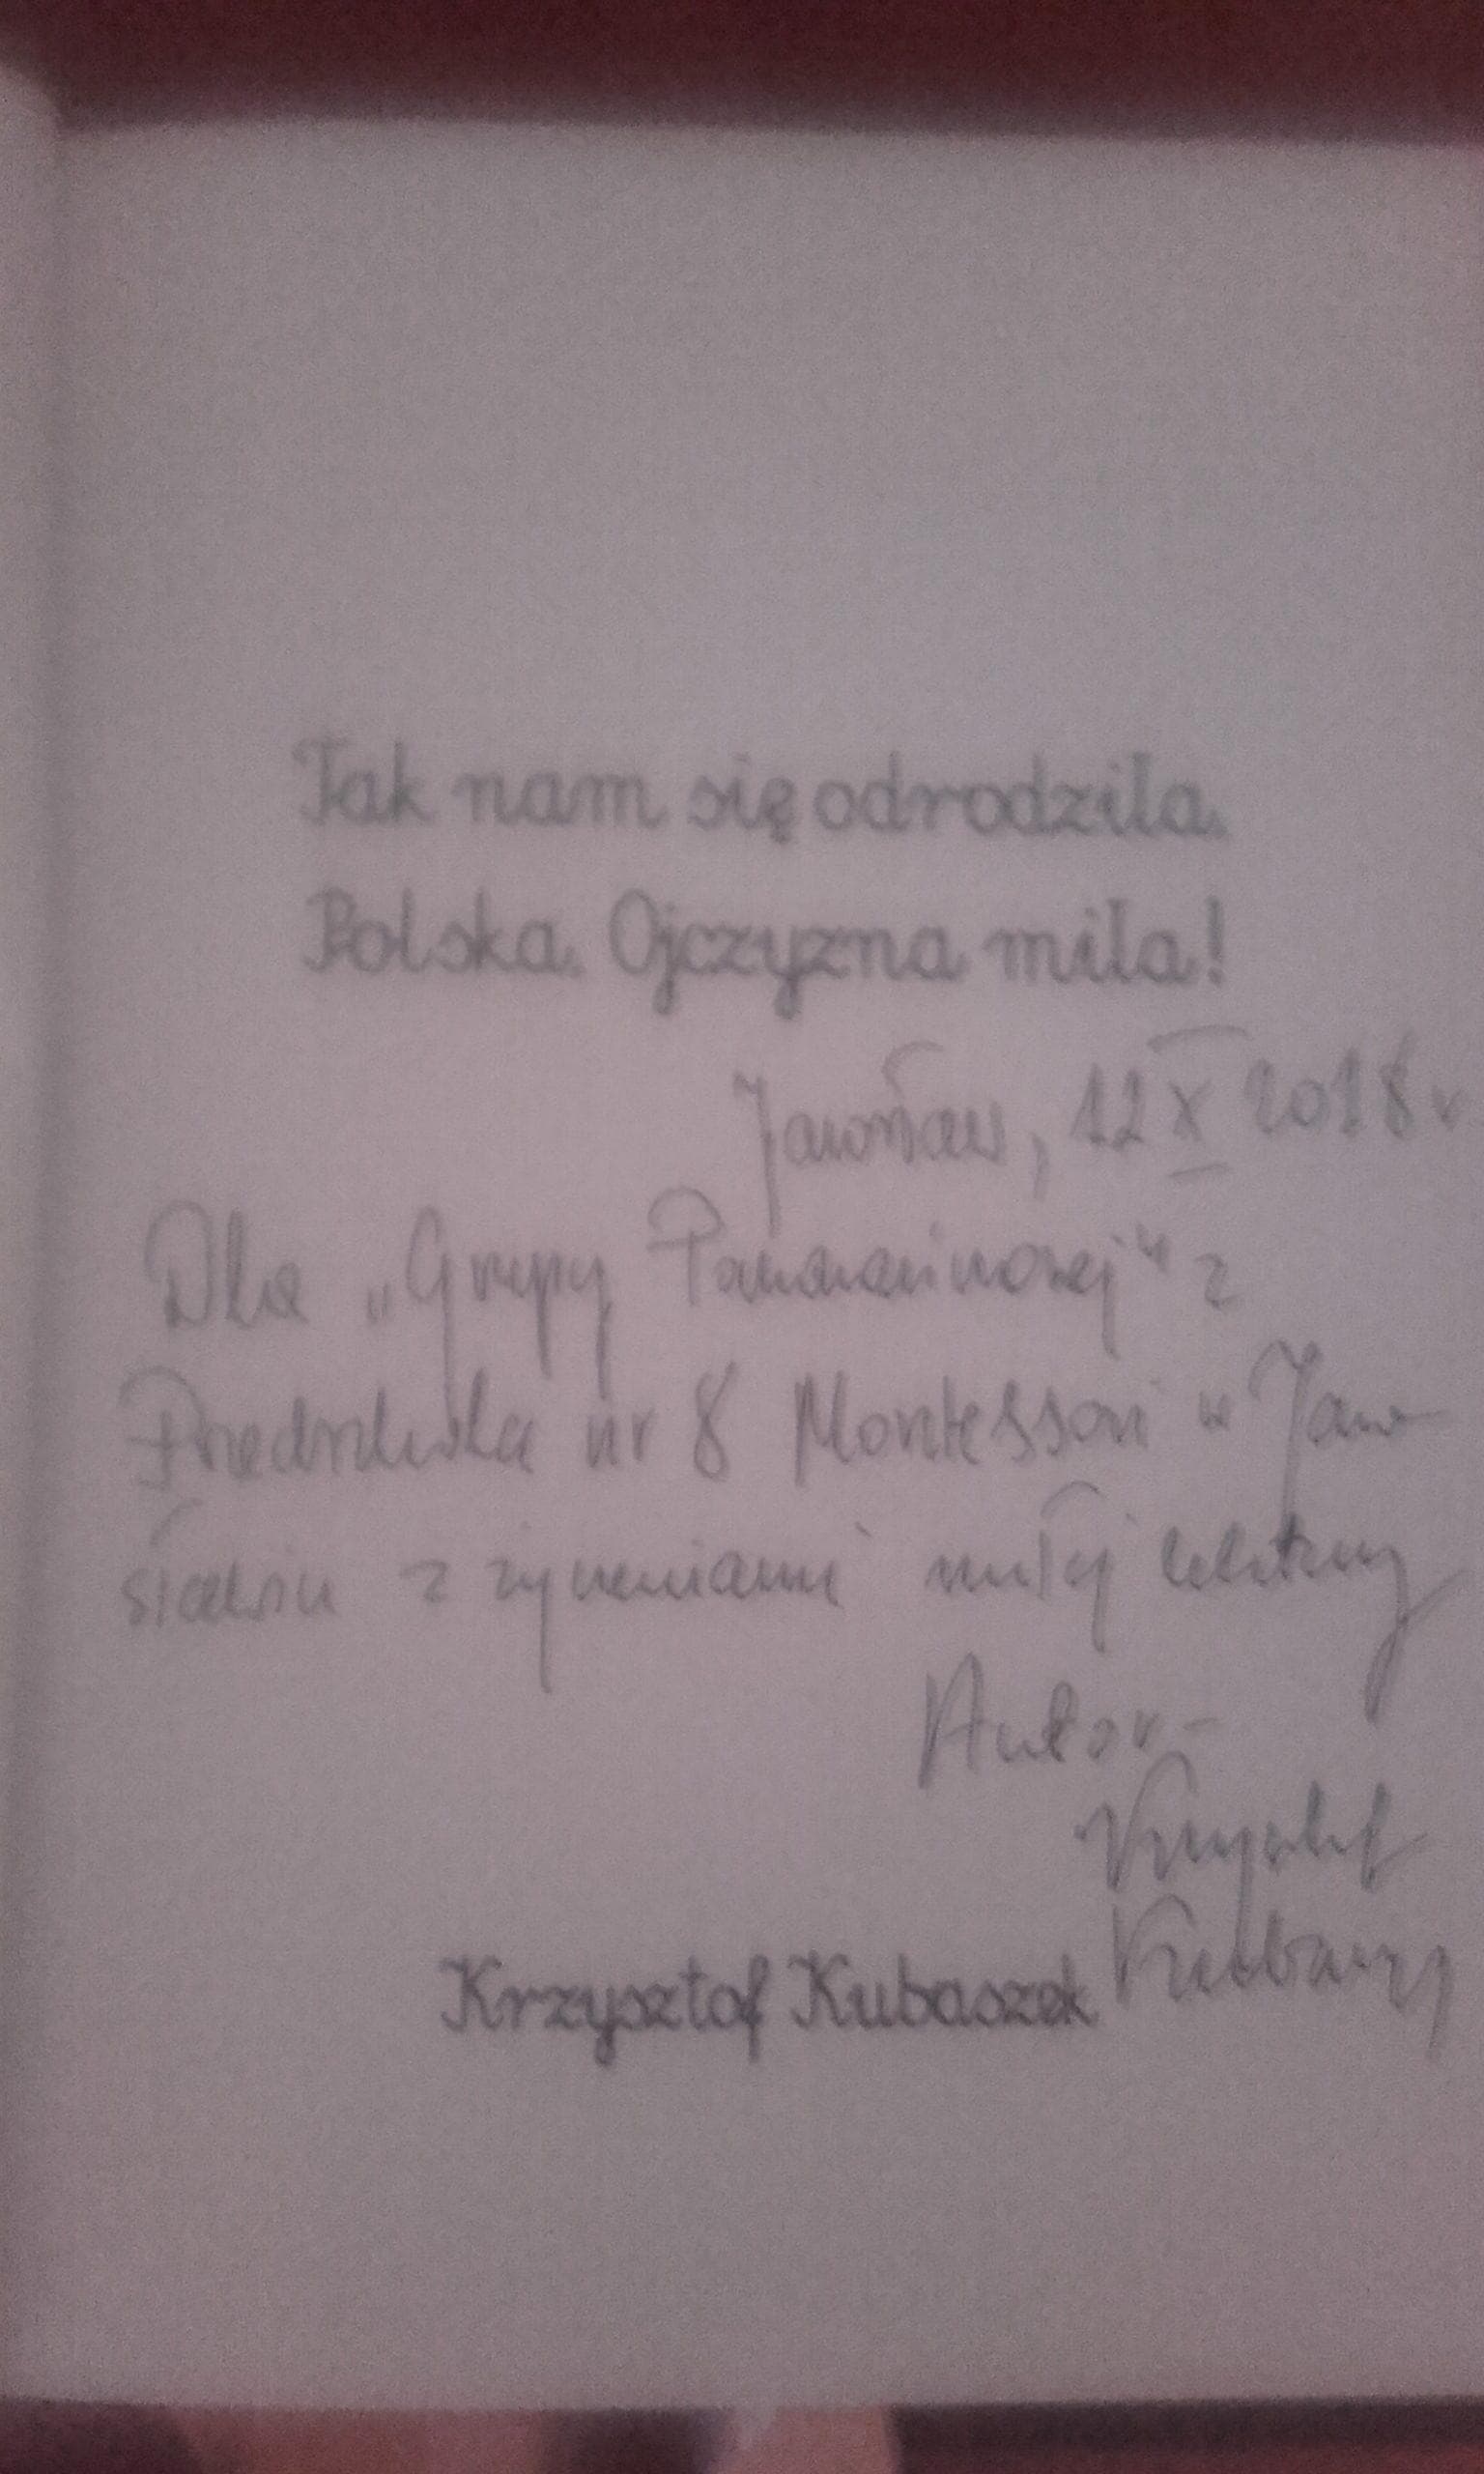 Tak nam się odrodziła
Polska. Ojczyzna miła!
Jarosław, 12 X 2018 r
Dla „Grupy Pomarańczowej" z
Przedszkola nr 8 Montessori w Jaro
sławiu z życzeniami miłej lektury
Autor -
Krzysztof
Krzysztof Kubaszek